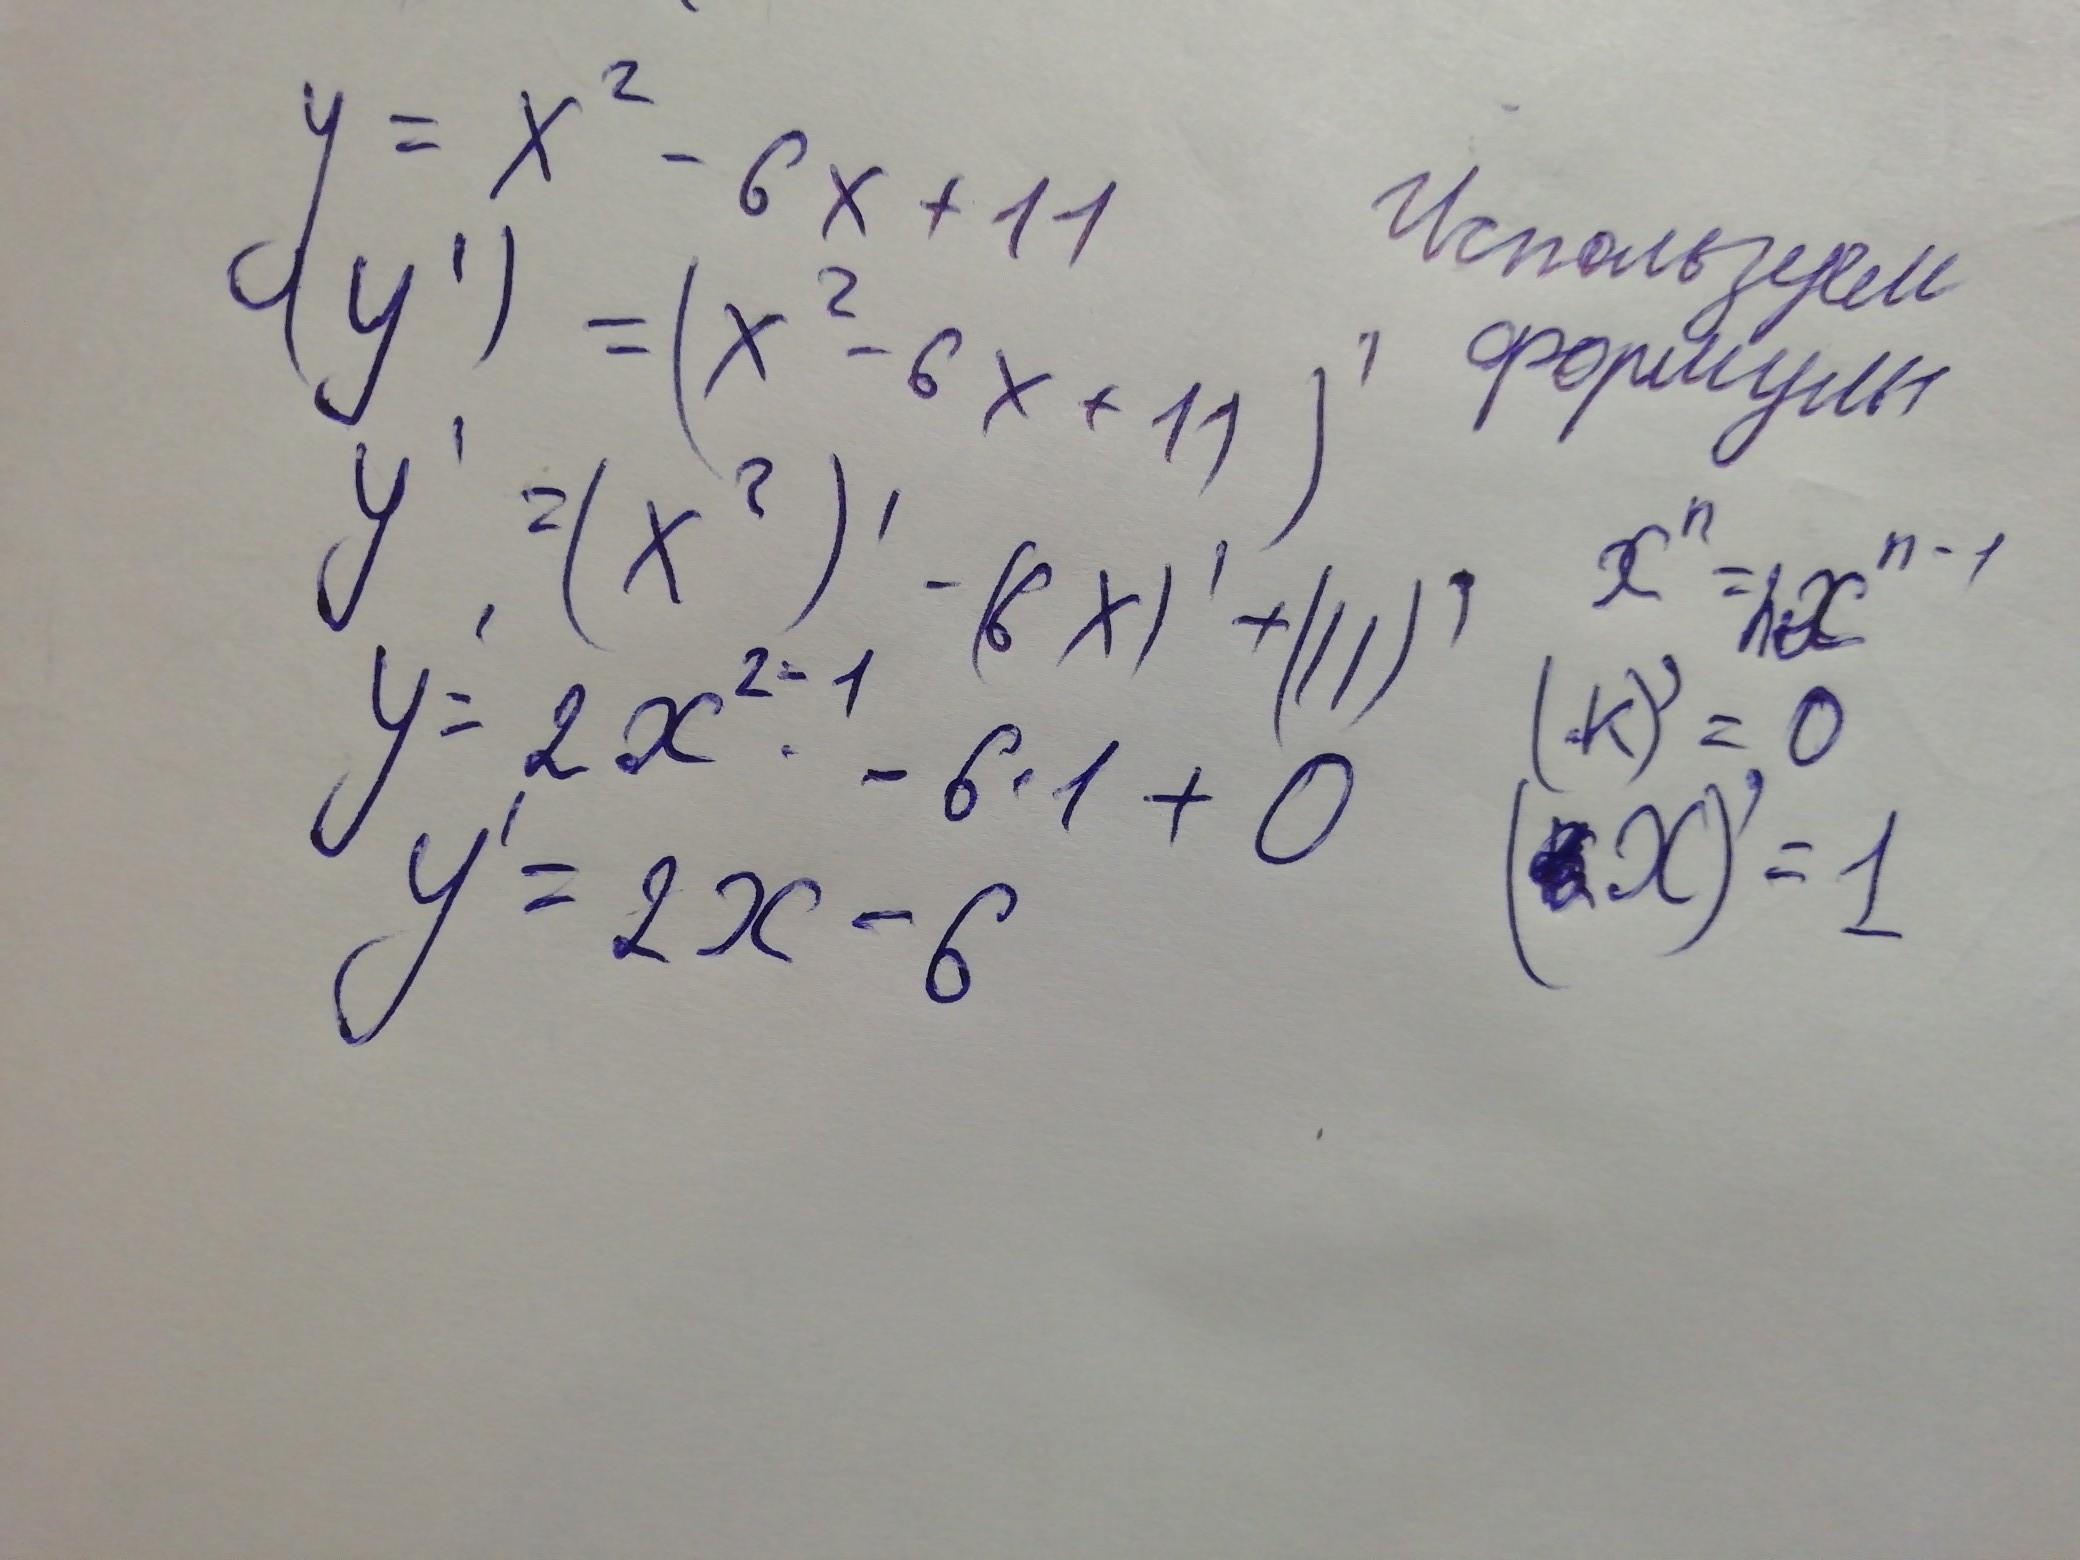 y = x² - 6x + 11
(y') = (x² - 6x + 11)'
y' = (x²)' - (6x)' + (11)'
y' = 2x²⁻¹ - 6·1 + 0
y' = 2x - 6
Используем
формулы
xⁿ = n·xⁿ⁻¹
(k)' = 0
(x)' = 1